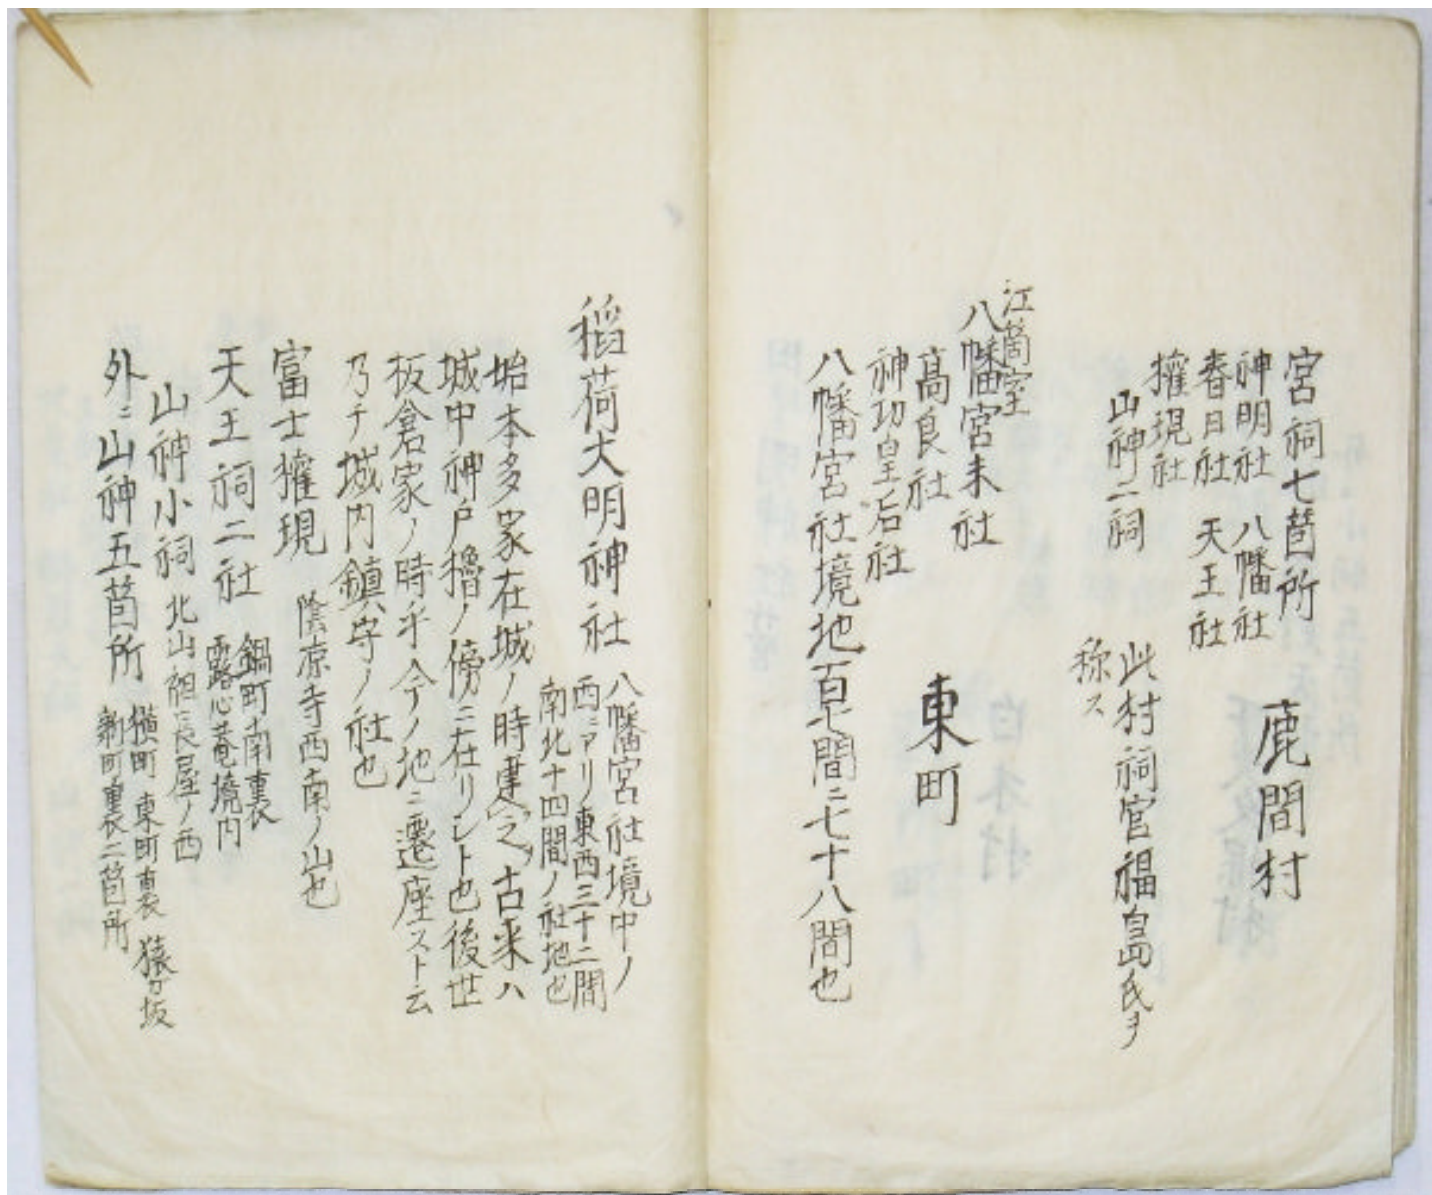 宮祠七箇所　鹿間村
神明社　八幡社
春日社　天王社
権現社
山神二祠　此村祠官福島氏ヲ
称ス
江箇室
八幡宮末社
高良社　東町
神功皇后社
八幡宮社境地百七間ニ七十八間也
稲荷大明神社　八幡宮社境中ノ
西ニアリ東西三十二間
南北十四間ノ社地也
始本多家在城ノ時建之古来ハ
城中神戸櫓ノ傍ニ在リシト也後世
板倉家ノ時乎今ノ地ニ遷座スト云
乃チ城内鎮守ノ社也
富士権現　陰凉寺西南ノ山也
天王祠二社　鍋町南裏
露心菴境内
山神小祠　北山組長屋ノ西
外ニ山神五箇所　横町　東町裏　猿ガ坂
新町裏二箇所